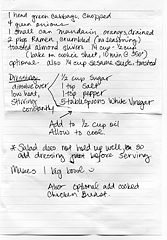 1 head green cabbage, chopped
4 green onions
1 small can mandarin oranges, drained
2 pkgs Ramen, crumbled (no seasoning)
toasted almond slivers 1/4 cup - 1/2 cup
(bake on cookie sheet, 10 min @ 350°)
optional: also 1/4 cup sesame seeds, toasted
Dressing
dissolve over low heat, stirring constantly
1/2 cup Sugar
1 tsp Salt
1 tsp pepper
5 tablespoons White Vinegar
Add to 1/2 cup oil
Allow to cool.
* Salad does not hold up well, so
add dressing before serving.
Makes 1 big bowl
Also optional: add cooked
Chicken Breast.